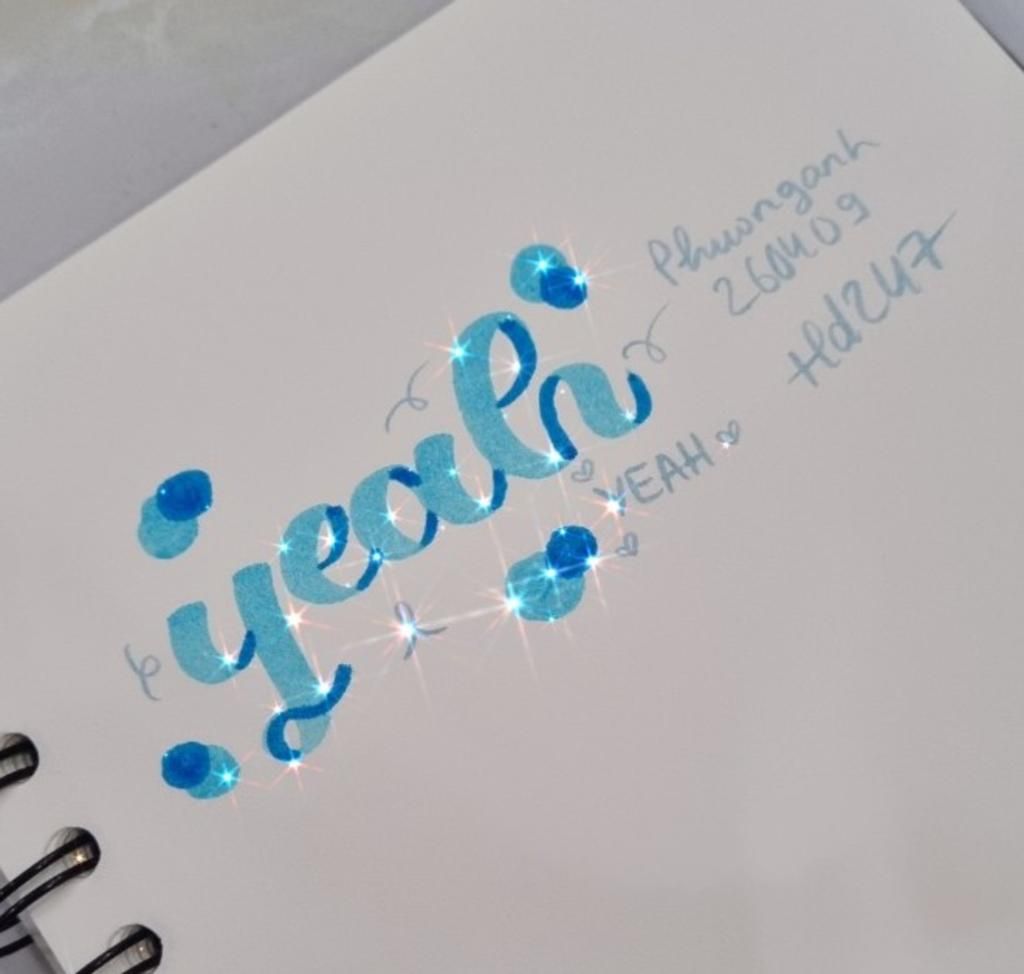 Phuonganh
260409
Hd247
yeah
YEAH